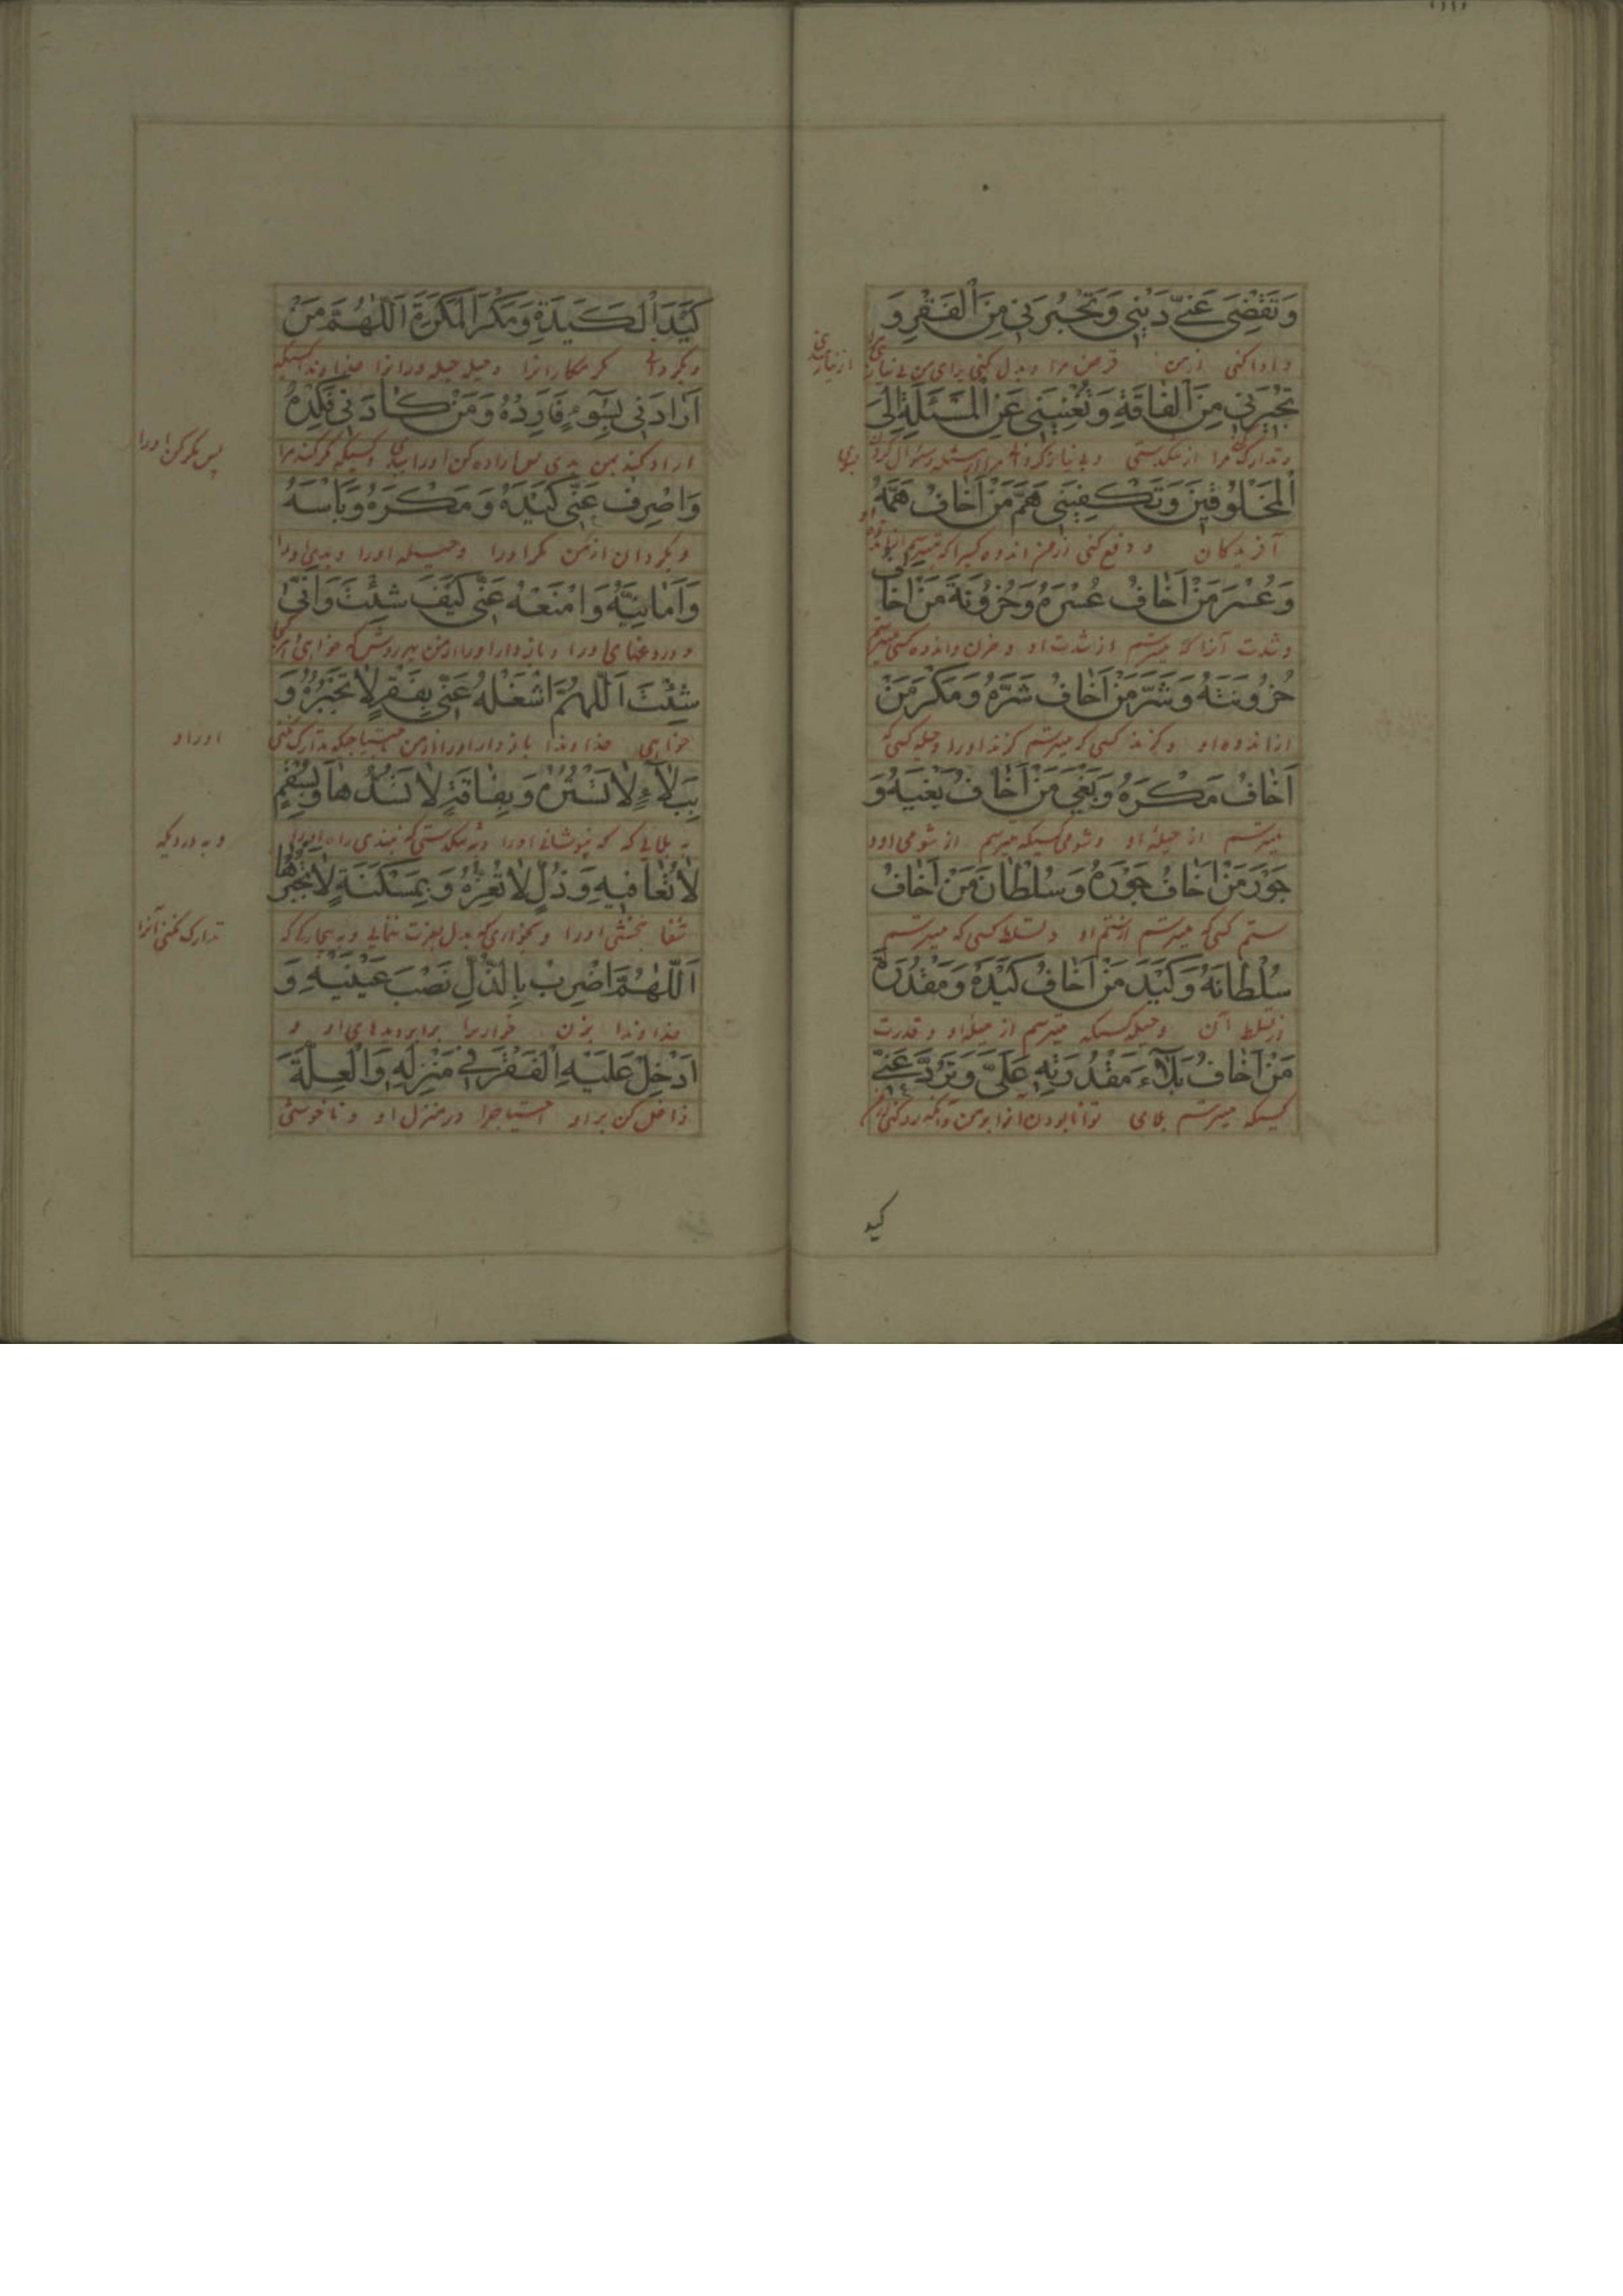 وَتَقْضِىَ عَنّي دَيْنِي وَتَجْبُرَنِي مِنَ الْفَقْرِ وَ
و ادا کنی از من قرض مرا و بدل کنی برای من بی نیازی از نیازمندی
تُجِيرَنِي مِنَ الْفَاقَةِ وَتُغْنِيَنِي عَنِ الْمَسْئَلَةِ اِلَى
و تدارک کنی مرا از تنکدستی و بی نیاز کردانی مرا از مسئله و سئوال کردن بسوی
الْمَخْلُوقِينَ وَتَكْفِيَنِي هَمَّ مَنْ اَخَافُ هَمَّهُ
آفریدکان و دفع کنی از من اندوه کسیرا که میترسم اندوه او
وَعُسْرَ مَنْ اَخَافُ عُسْرَهُ وَحُزُونَةَ مَنْ اَخَافُ
و شدت آنرا که میترسم از شدت او و حزن و اندوه کسی میترسم
حُزُونَتَهُ وَشَرَّ مَنْ اَخَافُ شَرَّهُ وَمَكْرَ مَنْ
از اندوه او و کزند کسی که میترسم کزند او را و حیله کسی که
اَخَافُ مَكْرَهُ وَبَغْيَ مَنْ اَخَافُ بَغْيَهُ وَ
میترسم از حیله او و شومی کسیکه میترسم از شومی او و
جَوْرَ مَنْ اَخَافُ جَوْرَهُ وَسُلْطَانَ مَنْ اَخَافُ
ستم کسی که میترسم از ستم او و تسلط کسی که میترسم
سُلْطَانَهُ وَكَيْدَ مَنْ اَخَافُ كَيْدَهُ وَمَقْدُرَةَ
از تسلط آن و حیله کسیکه میترسم از حیله او و قدرت
مَنْ اَخَافُ بَلَاءَ مَقْدُرَتِهِ عَلَىَّ وَتَرُدَّ عَنّي
کسیکه میترسم بلای توانا بودن آنرا بر من و آنکه رد کنی از من
کید
كَيْدَ الْكَيَدَةِ وَمَكْرَ الْمَكَرَةِ اَللّٰهُمَّ مَنْ
مکر مکارانرا و حیله حیله ورانرا خداوندا کسیکه
اَرَادَنِي بِسُوءٍ فَاَرِدْهُ وَمَنْ كَادَنِي فَكِدْهُ
اراده کند بمن بدی پس اراده کن او را ببدی و کسیکه مکر کند مرا پس مکر کن او را
وَاصْرِفْ عَنّي كَيْدَهُ وَمَكْرَهُ وَبَأْسَهُ
و بکردان از من مکر او را و حیله او را و بدی او را
وَاَمَانِيَّهُ وَامْنَعْهُ عَنّي كَيْفَ شِئْتَ وَاَنّٰى
و باز دار او را از من بهر روش که خواهی و هر
شِئْتَ اَللّٰهُمَّ اشْغَلْهُ عَنّي بِفَقْرٍ لَا تَجْبُرُهُ وَ
خواهی خداوندا باز دار او را از من باحتیاجیکه تدارک نکنی او را و
بِبَلَاءٍ لَا تَسْتُرُهُ وَبِفَاقَةٍ لَا تَسُدُّهَا وَبِسُقْمٍ
به بلایی که نپوشانی او را و بتنکدستی که نبندی راه او را و به دردیکه
لَا تُعَافِيهِ وَذُلٍّ لَا تُعِزُّهُ وَبِمَسْكَنَةٍ لَا تَجْبُرُهَا
شفا نبخشی او را و بخواری که بدل بعزت ننمایی و به بیچارکی که تدارک نکنی آنرا
اَللّٰهُمَّ اضْرِبْ بِالذُّلِّ نَصْبَ عَيْنَيْهِ وَ
خداوندا بزن خواریرا برابر دیدهای او و
اَدْخِلْ عَلَيْهِ الْفَقْرَ فِي مَنْزِلِهِ وَالْعِلَّةَ
داخل کن بر او احتیاجرا در منزل او و ناخوشی